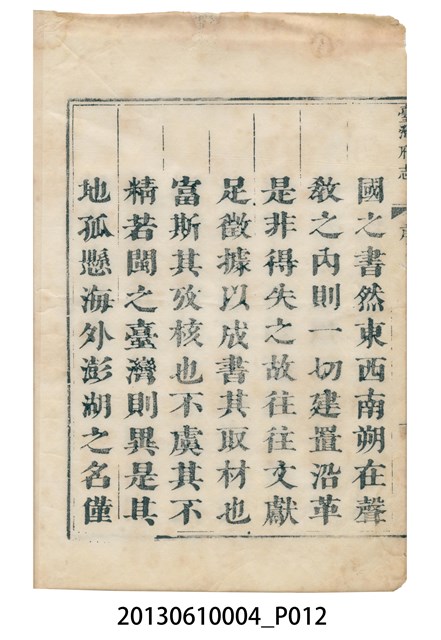 臺灣府志
國之書然東西南朔在聲
敎之內則一切建置沿革
是非得失之故往往文獻
足徵據以成書其取材也
富斯其攷核也不虞其不
精若閩之臺灣則異是其
地孤懸海外澎湖之名僅
20130610004_P012